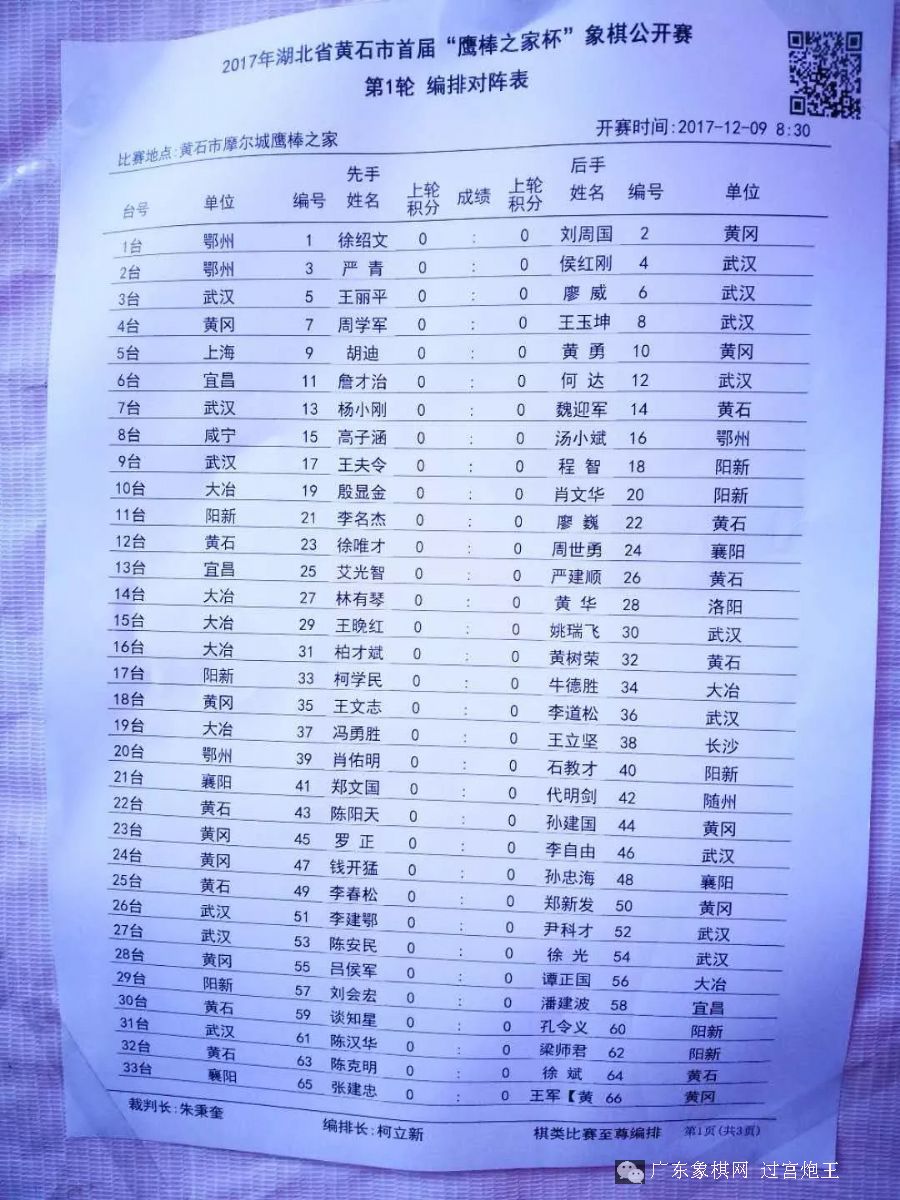 2017年湖北省黄石市首届“鹰棒之家杯”象棋公开赛
第1轮 编排对阵表
比赛地点:黄石市摩尔城鹰棒之家 开赛时间:2017-12-09 8:30
台号 单位 编号 先手姓名 上轮积分 成绩 上轮积分 后手姓名 编号 单位
1台 鄂州 1 徐绍文 0 : 0 刘周国 2 黄冈
2台 鄂州 3 严青 0 : 0 侯红刚 4 武汉
3台 武汉 5 王丽平 0 : 0 廖威 6 武汉
4台 黄冈 7 周学军 0 : 0 王玉坤 8 武汉
5台 上海 9 胡迪 0 : 0 黄勇 10 黄冈
6台 宜昌 11 詹才治 0 : 0 何达 12 武汉
7台 武汉 13 杨小刚 0 : 0 魏迎军 14 黄石
8台 咸宁 15 高子涵 0 : 0 汤小斌 16 鄂州
9台 武汉 17 王夫令 0 : 0 程智 18 阳新
10台 大冶 19 殷显金 0 : 0 肖文华 20 阳新
11台 阳新 21 李名杰 0 : 0 廖巍 22 黄石
12台 黄石 23 徐唯才 0 : 0 周世勇 24 襄阳
13台 宜昌 25 艾光智 0 : 0 严建顺 26 黄石
14台 大冶 27 林有琴 0 : 0 黄华 28 洛阳
15台 大冶 29 王晚红 0 : 0 姚瑞飞 30 武汉
16台 大冶 31 柏才斌 0 : 0 黄树荣 32 黄石
17台 阳新 33 柯学民 0 : 0 牛德胜 34 大冶
18台 黄冈 35 王文志 0 : 0 李道松 36 武汉
19台 大冶 37 冯勇胜 0 : 0 王立坚 38 长沙
20台 鄂州 39 肖佑明 0 : 0 石教才 40 阳新
21台 襄阳 41 郑文国 0 : 0 代明剑 42 随州
22台 黄石 43 陈阳天 0 : 0 孙建国 44 黄冈
23台 黄冈 45 罗正 0 : 0 李自由 46 武汉
24台 黄冈 47 钱开猛 0 : 0 孙忠海 48 襄阳
25台 黄石 49 李春松 0 : 0 郑新发 50 黄冈
26台 武汉 51 李建鄂 0 : 0 尹科才 52 武汉
27台 武汉 53 陈安民 0 : 0 徐光 54 武汉
28台 黄冈 55 吕侯军 0 : 0 谭正国 56 大冶
29台 阳新 57 刘会宏 0 : 0 潘建波 58 宜昌
30台 黄石 59 谈知星 0 : 0 孔令义 60 阳新
31台 武汉 61 陈汉华 0 : 0 梁师君 62 阳新
32台 黄石 63 陈克明 0 : 0 徐斌 64 黄石
33台 襄阳 65 张建忠 0 : 0 王军【黄 66 黄冈
裁判长:朱秉奎 编排长:柯立新 棋类比赛至尊编排 第1页(共3页)
广东象棋网 过宫炮王